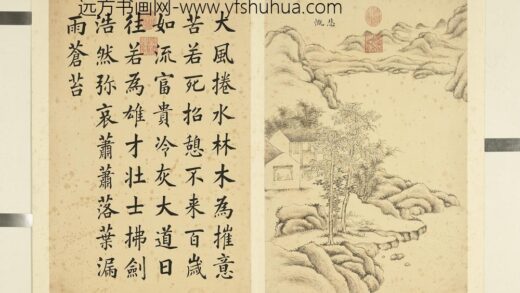 远方书画网-www.yfshuhua.com
悲慨
大風捲水林木為摧意
苦若死招憩不来百歲
如流富貴冷灰大道日
往若為雄才壮士拂劍
浩然弥哀蕭蕭落葉漏
雨蒼苔